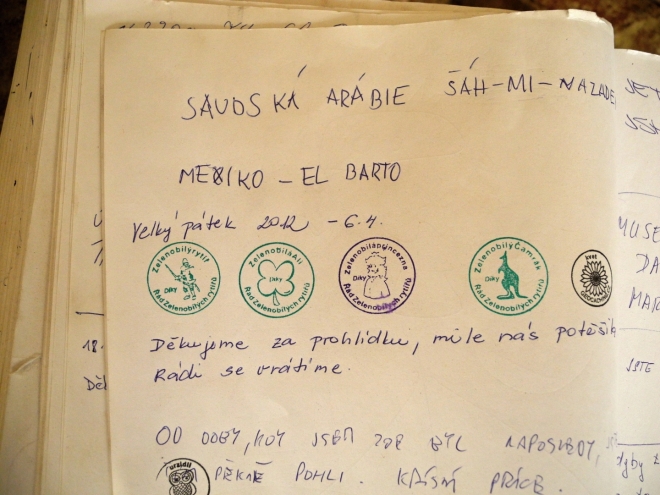 SAUDSKÁ ARÁBIE ŠÁH-MI-NAZADE
MEXIKO - EL BARTO
Velký pátek 2012 - 6.4.
Zelenobílý rytíř
Díky
Řád Zelenobílých rytířů
Zelenobílá Ali
Díky
Řád Zelenobílých rytířů
Zelenobílá princezna
Díky
Řád Zelenobílých rytířů
Zelenobílý Čamrák
Díky
Řád Zelenobílých rytířů
kvet
Děkujeme za prohlídku, mile nás potěšila
Rádi se vrátíme.
OD DOBY, KDY JSEM ZDE BYL NAPOSLEDY,
PĚKNĚ POHLI. KRÁSNÁ PRÁCE.
uraidil
MUSE
DA
MAR
18.
Dě